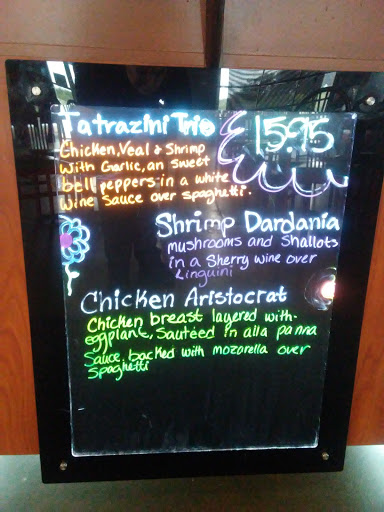 Tatrazini Trio
15.95
Chicken, Veal & Shrimp
with Garlic, an sweet
bell peppers in a white
wine sauce over spaghetti.
Shrimp Dardania
mushrooms and Shallots
in a Sherry wine over
Linguini
Chicken Aristocrat
Chicken breast layered with
eggplant, Sautéed in alla panna
Sauce, backed with mozorella over
Spaghetti